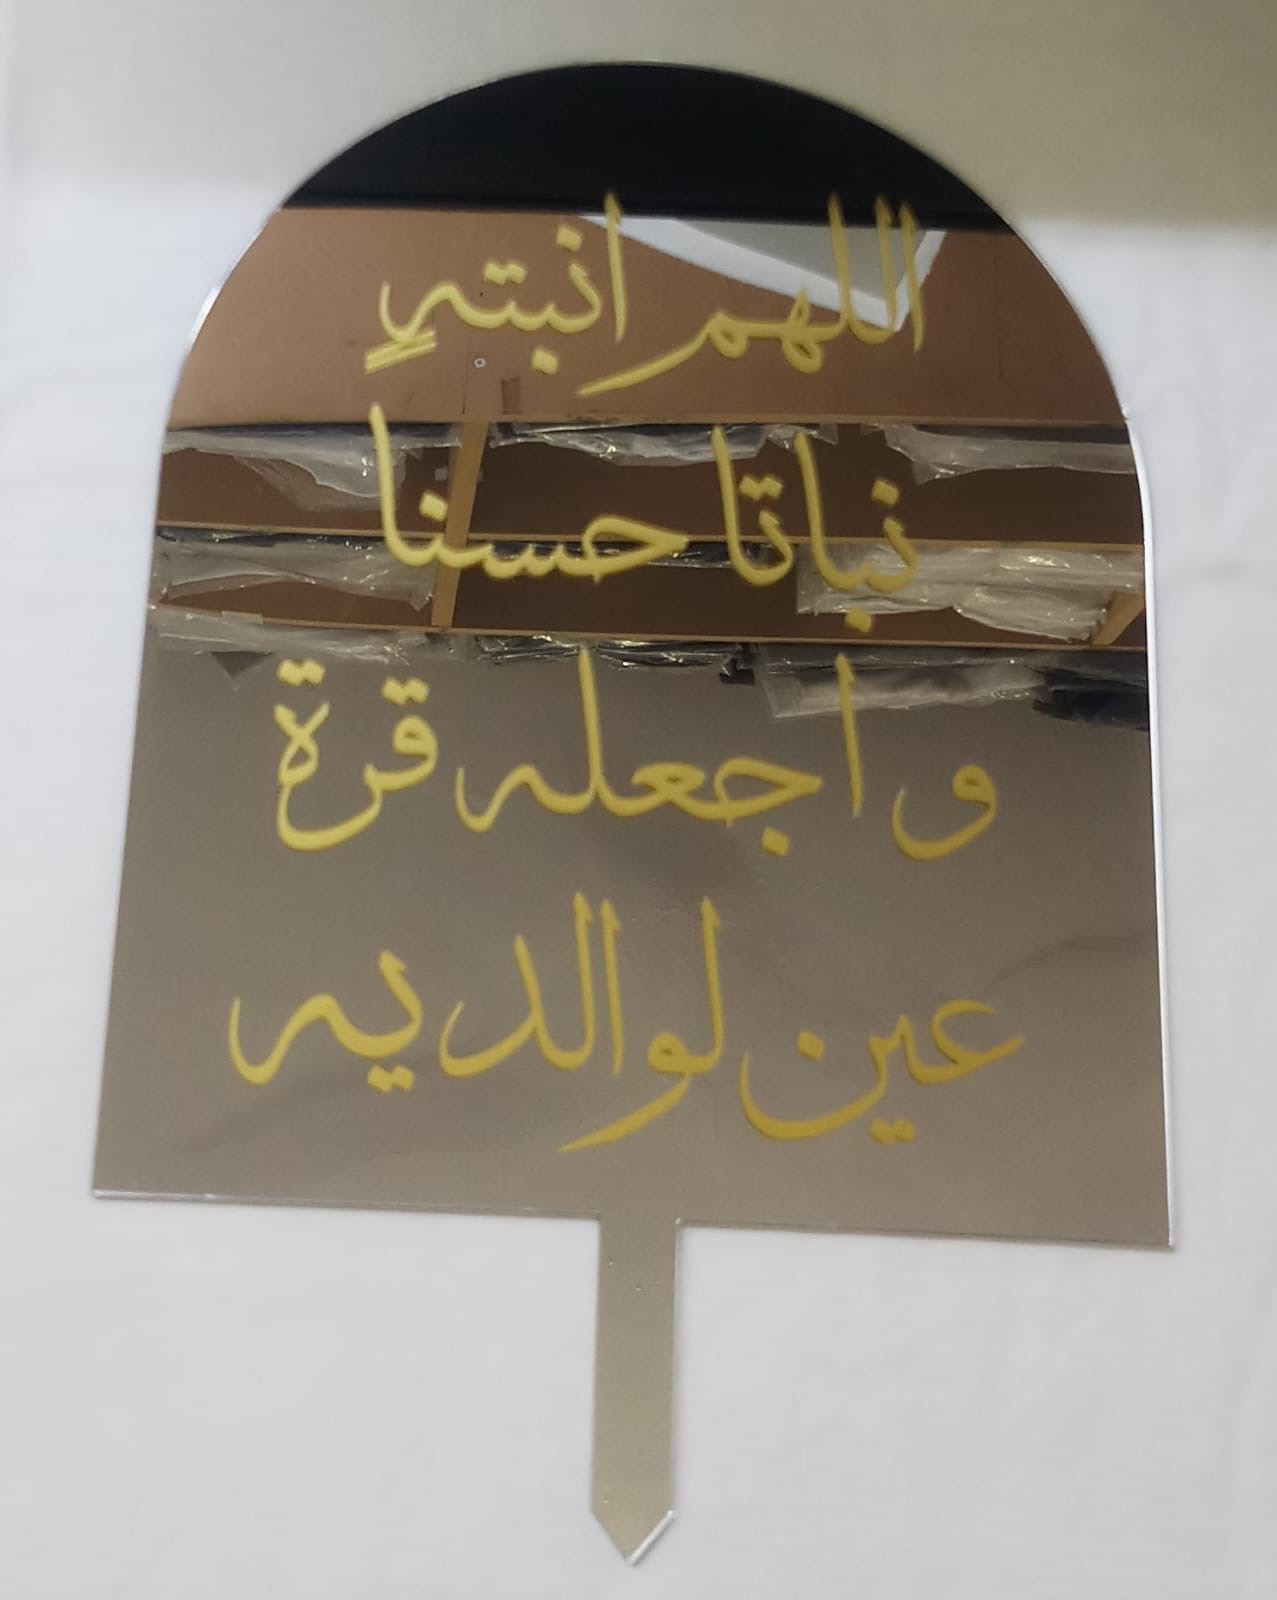 اللهم انبتهٍ
نباتا حسنا
و اجعله قرة
عين لوالديه